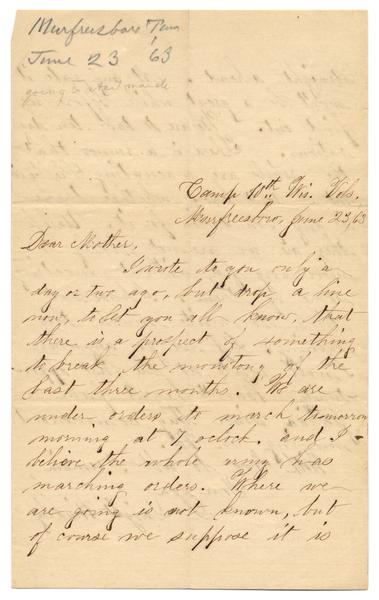 Murfreesboro Tenn
June 23 '63
going to start march
Camp 10th Wis. Vols.
Murfreesboro, June 23, 63
Dear Mother,
I wrote to you only a
day or two ago, but drop a line
now, to let you all know, that
there is a prospect of something
to break the monotony of the
last three months. We are
under orders to march tomorrow
morning at 7 oclock. and I
believe the whole army has
marching orders. Where we
are going is not known, but
of course we suppose it is